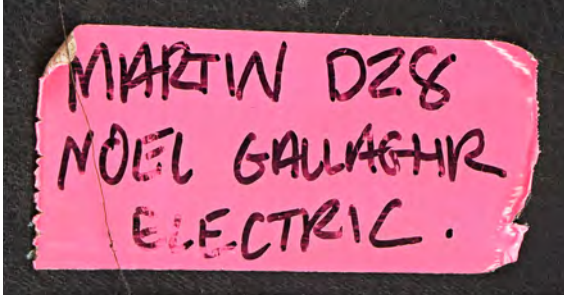 MARTIN D28
NOEL GALLAGHR
ELECTRIC.